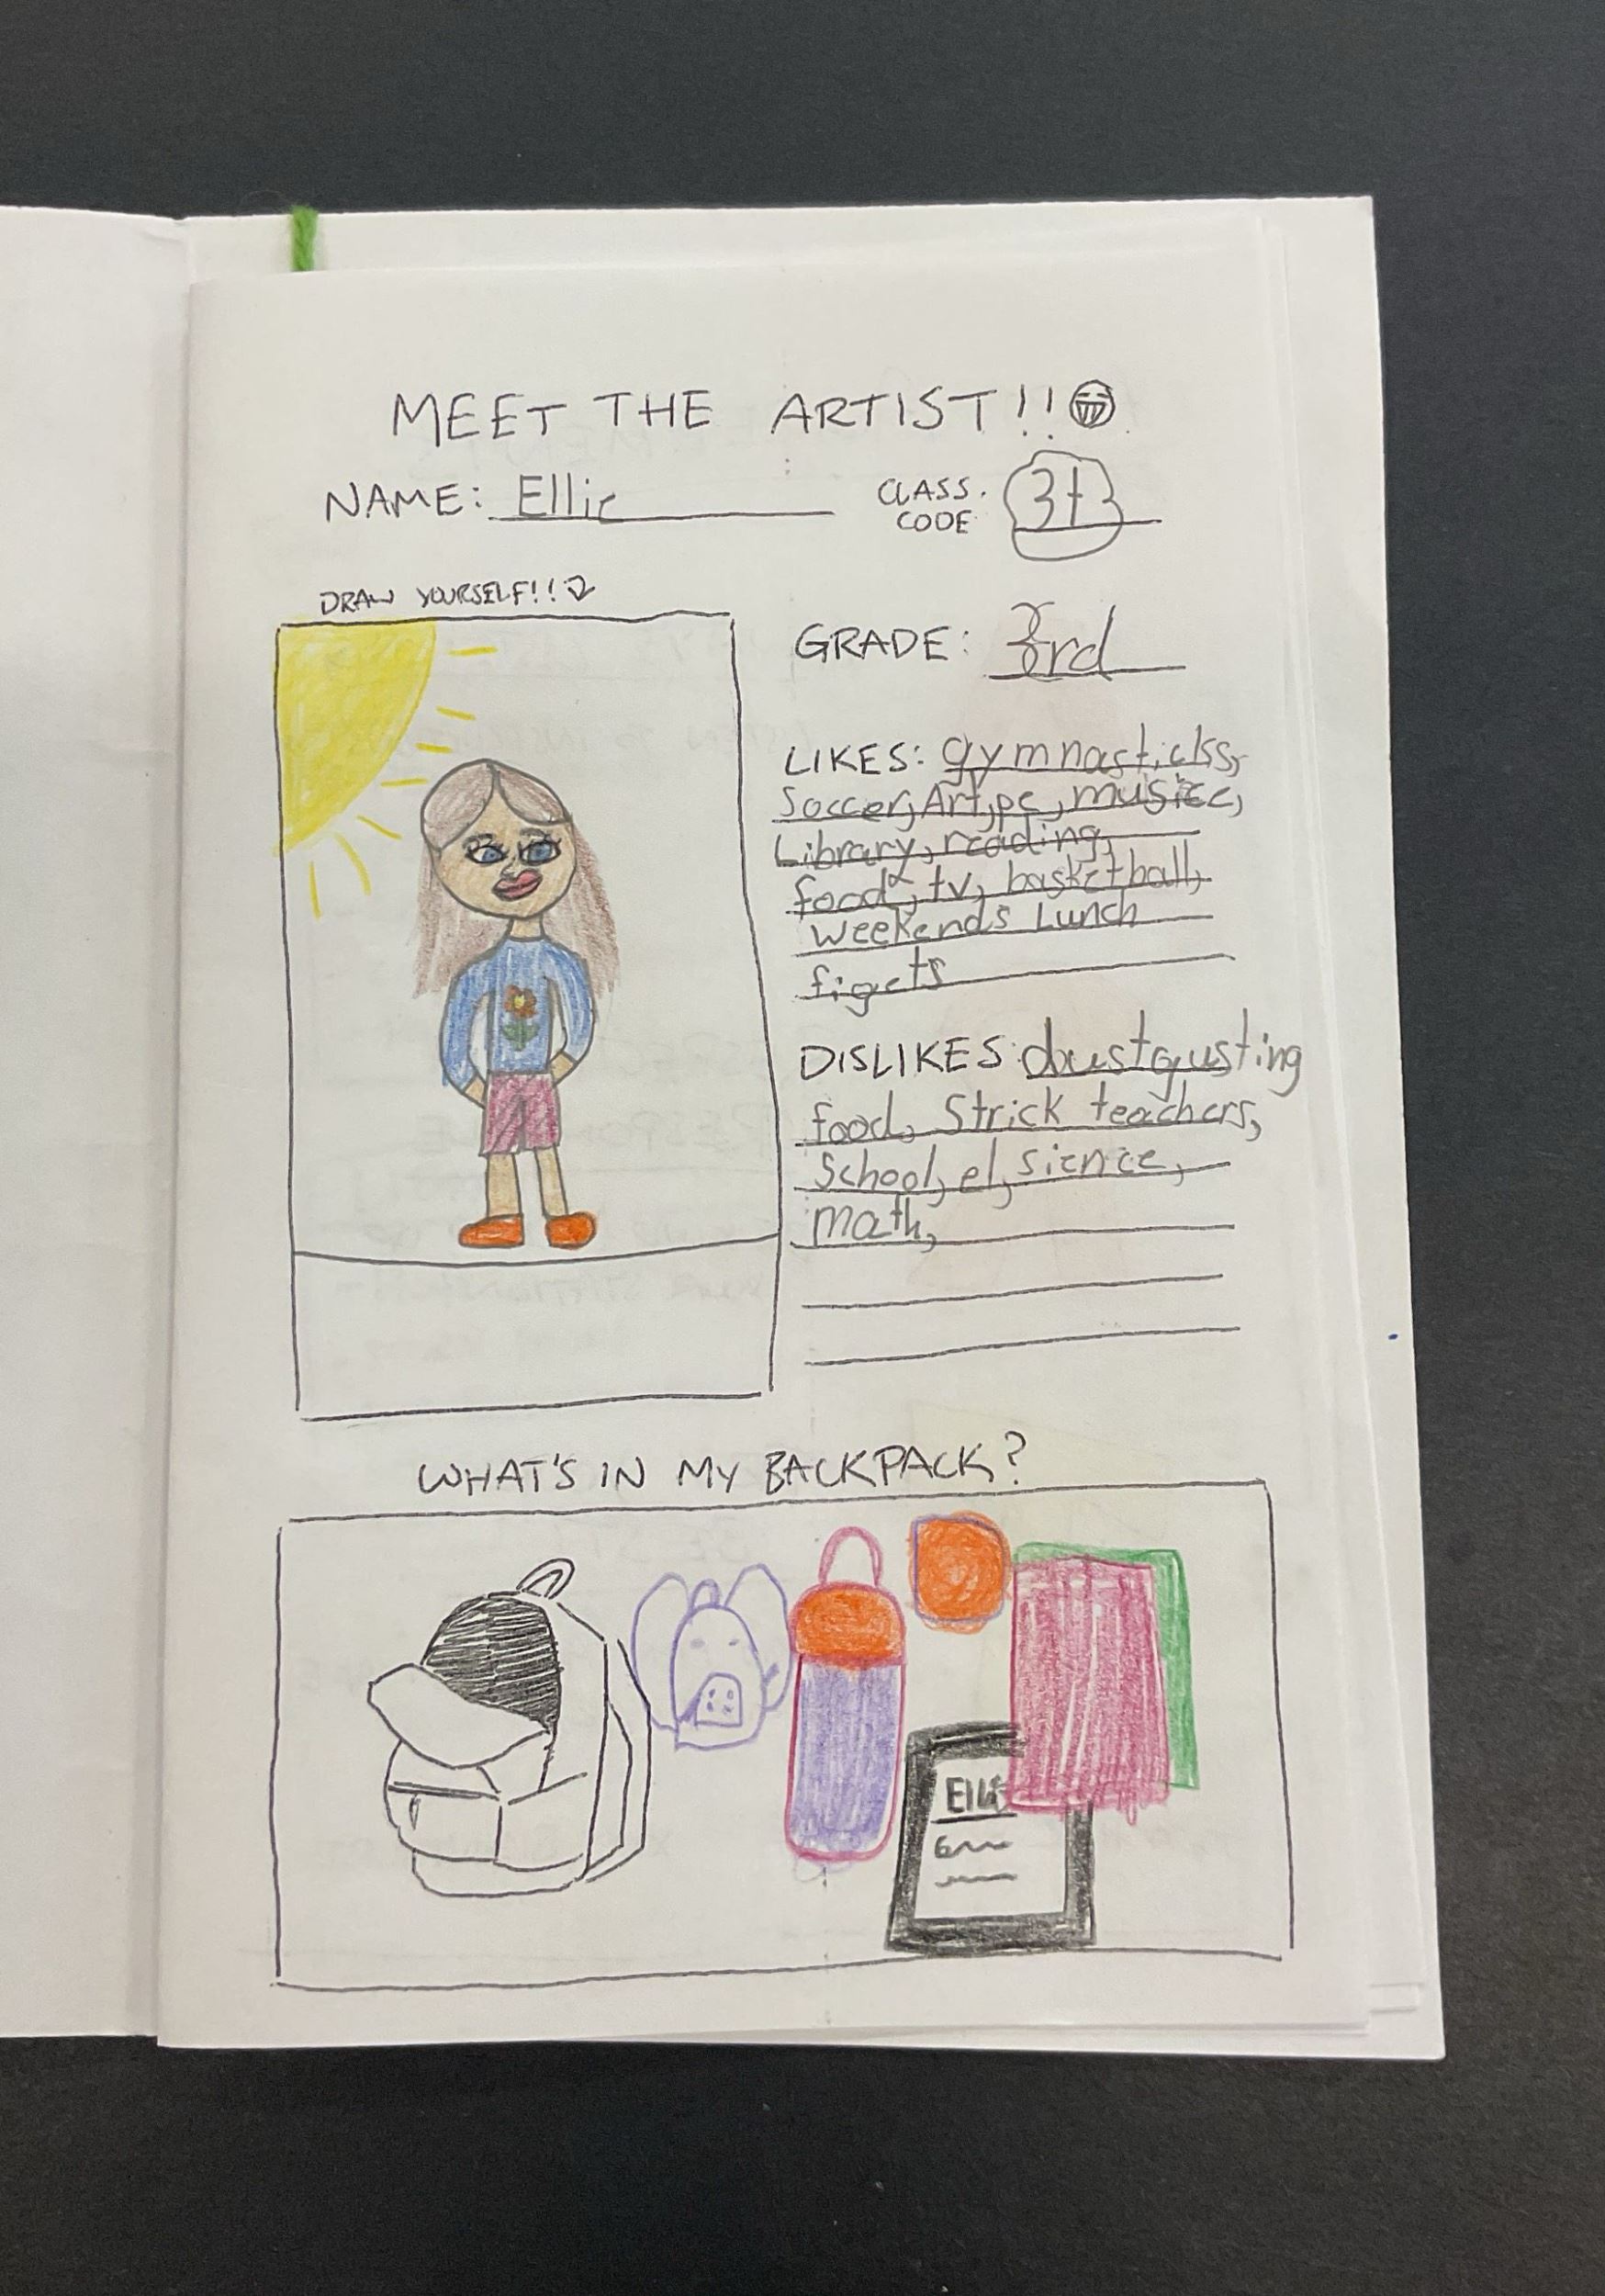 MEET THE ARTIST!!
NAME: Ellie
CLASS.
CODE
DRAW YOURSELF!!
GRADE: 3rd
LIKES: gymnasticks,
Soccer, Art, pe, musice,
Library, reading,
food, tv, basketball,
weekends Lunch
figets
DISLIKES: dustgusting
food, Strick teachers,
School, el, sience,
math,
WHAT'S IN MY BACKPACK?
Ellie